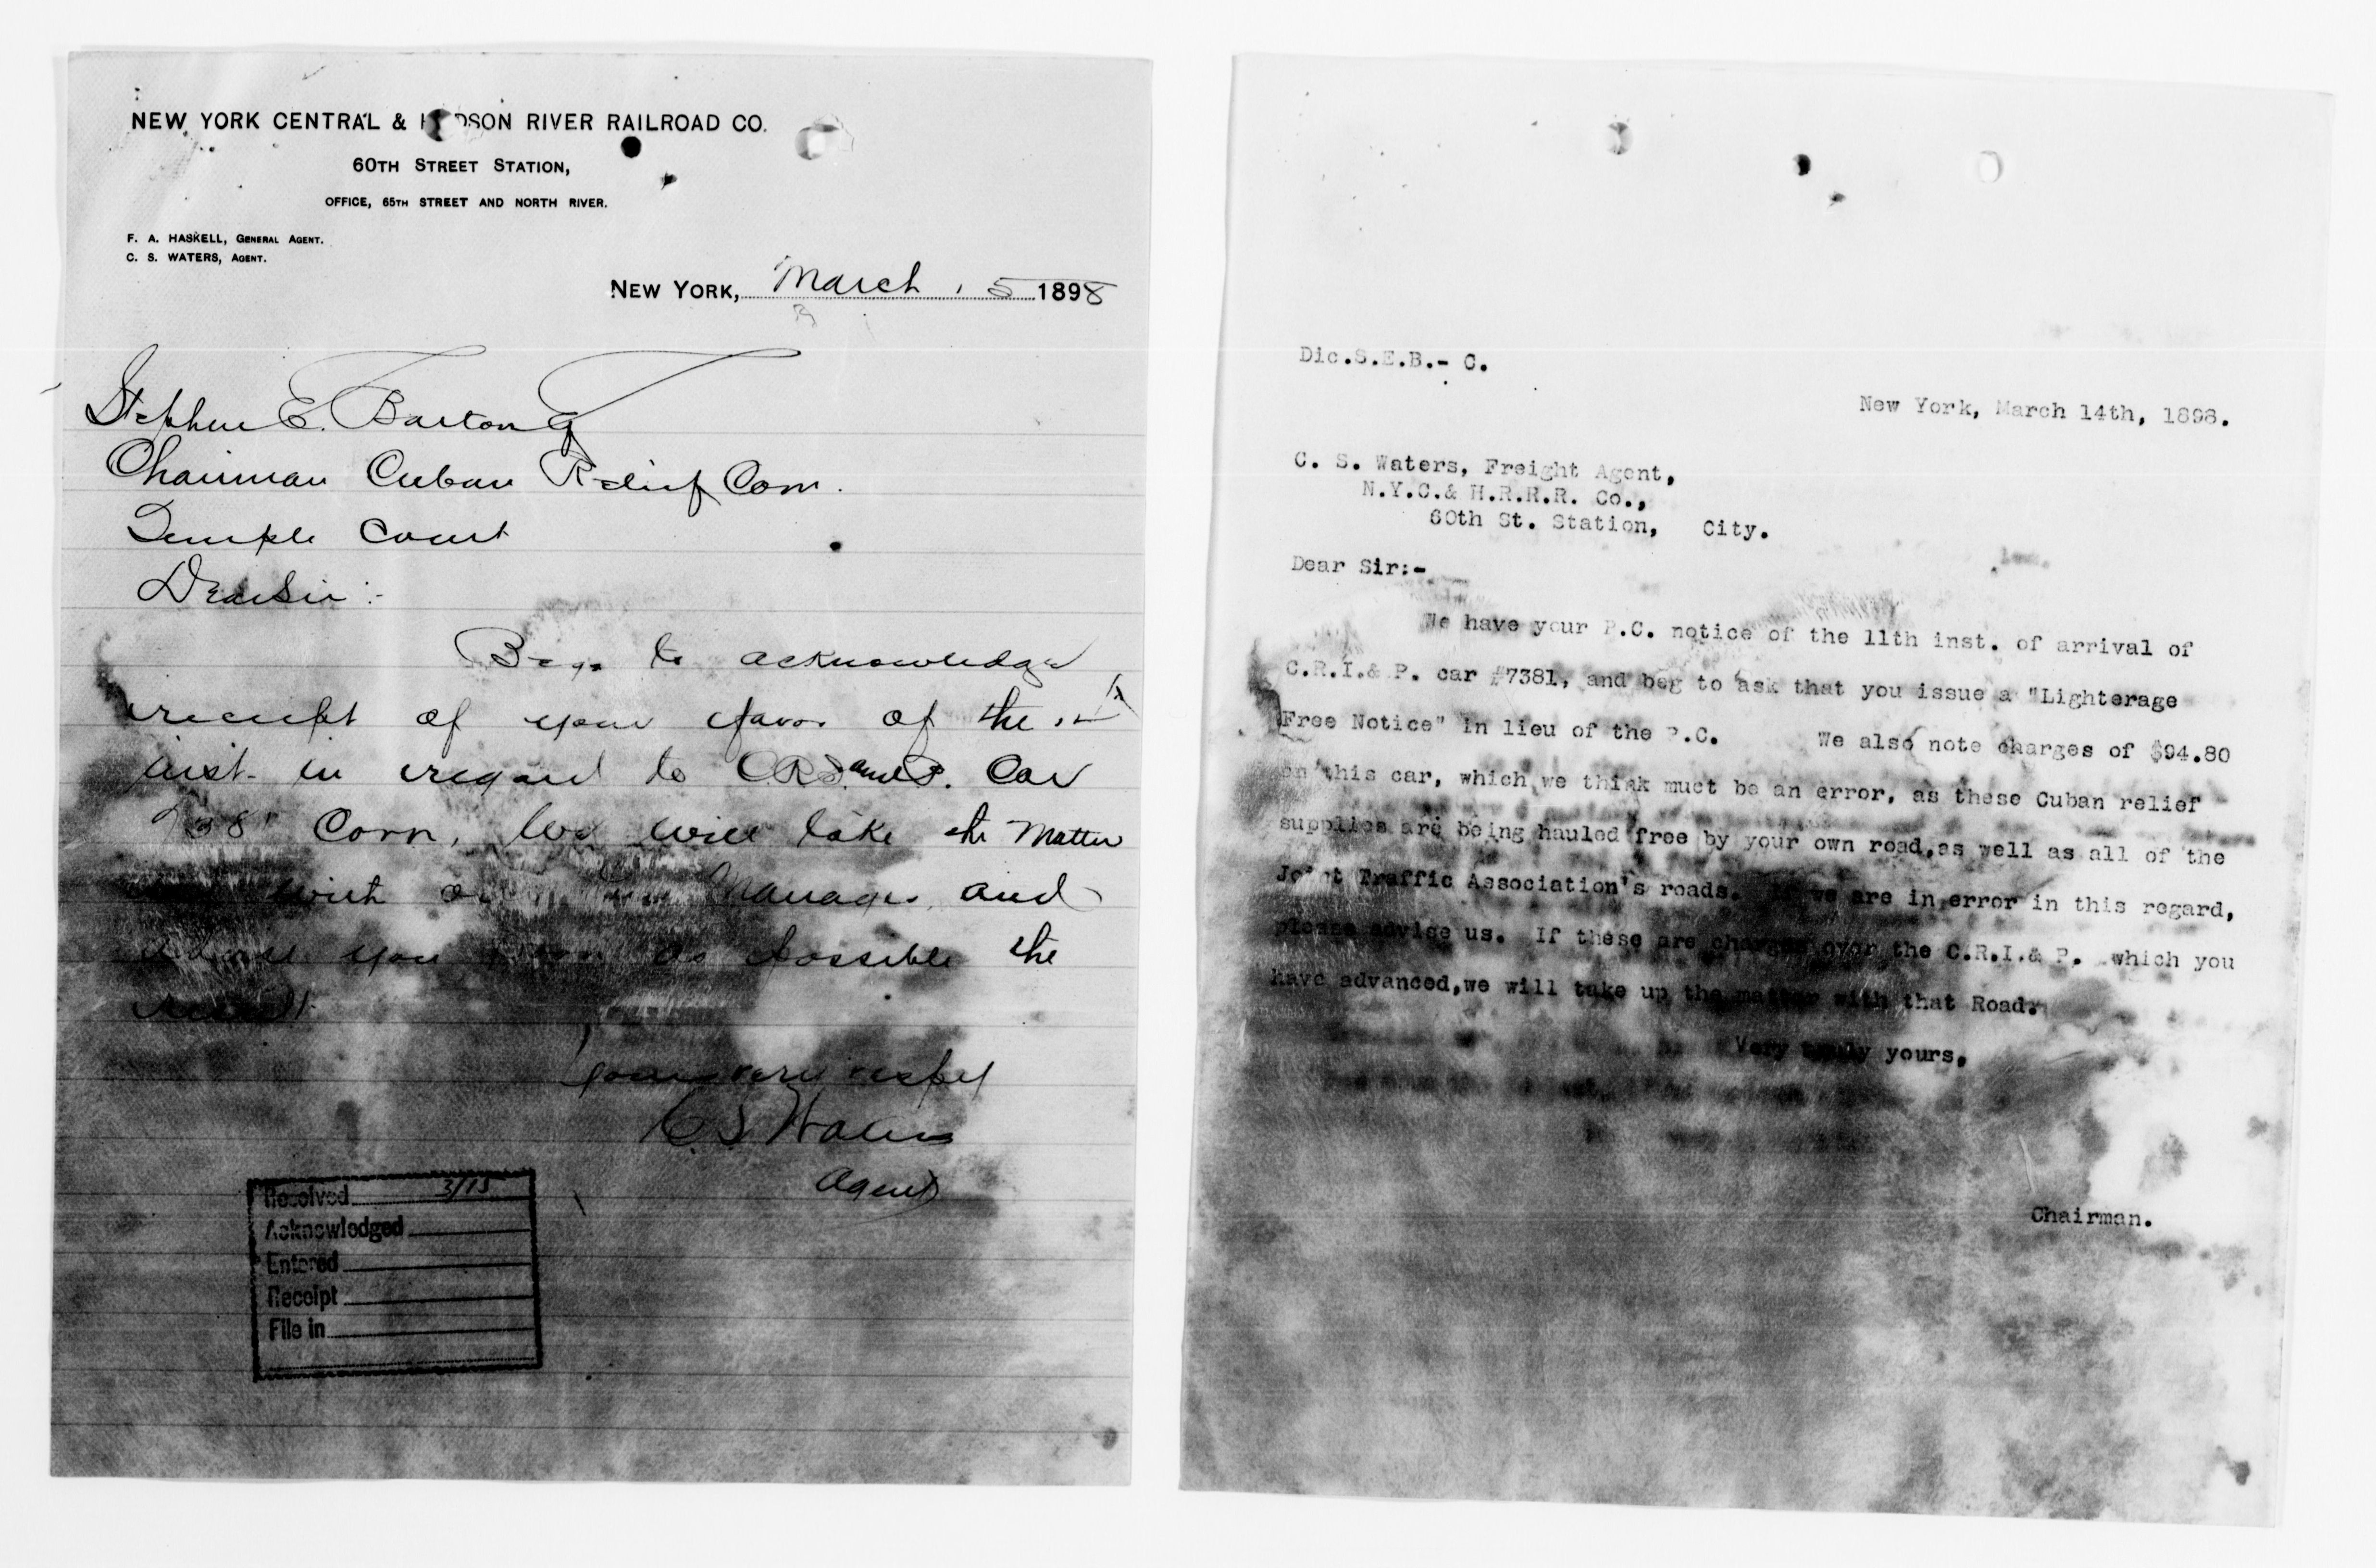 NEW YORK CENTRAL & HUDSON RIVER RAILROAD CO.
60TH STREET STATION,
OFFICE, 65TH STREET AND NORTH RIVER.
F. A. HASKELL, GENERAL AGENT.
C. S. WATERS, AGENT.
NEW YORK, March 15 1898
Stephen E. Barton
Chairman Cuban Relief Com.
Temple Court
Dear Sir:-
Beg to acknowledge
receipt of your favor of the
inst. in regard to C.R.I. and P. Car
738 Corn, We will take the Matter
with our Manager and
advise you soon as possible the
result
yours very respfy
C S Waters
Agent
Received 3/15
Acknowledged
Entered
Receipt
File in
Dic.S.E.B.- C.
New York, March 14th, 1898.
C. S. Waters, Freight Agent,
N.Y.C.& H.R.R.R. Co.,
60th St. Station, City.
Dear Sir:-
We have your P.C. notice of the 11th inst. of arrival of
C.R.I.& P. car #7381, and beg to ask that you issue a "Lighterage
Free Notice" in lieu of the P.C. We also note charges of $94.80
on this car, which we think must be an error, as these Cuban relief
supplies are being hauled free by your own road,as well as all of the
Joint Traffic Association's roads. If we are in error in this regard,
please advise us. If these are charges over the C.R.I.& P. which you
have advanced,we will take up the matter with that Road.
Very truly yours,
Chairman.